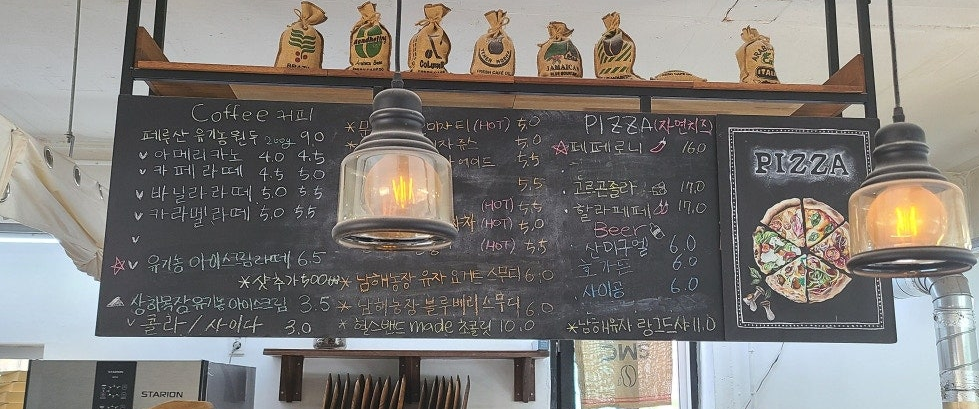 BRAZIL
COLUMBIA
JAMAICA
ITALI
Coffee 커피
페루산 유기농 원두 200g 9.0
아메리카노 4.0 4.5
카페라떼 4.5 5.0
바닐라라떼 5.0 5.5
카라멜라떼 5.0 5.5
유기농 아이스크림라떼 6.5
*샷추가 500₩
상하목장 유기농 아이스크림 3.5
콜라/사이다 3.0
자티 (HOT) 5.0
자 쥬스 5.0
에이드 5.5
5.5
(HOT) 5.5
차 (HOT) 5.0
(HOT) 5.5
*남해농장 유자 요거트 스무디 6.0
*남해농장 블루베리 스무디 6.0
*헬스밴드 made 초콜릿 10.0
PIZZA (자연치즈)
페페로니 16.0
고르곤졸라 17.0
할라페뇨 17.0
Beer
산미구엘 6.0
호가든 6.0
사이공 6.0
*남해유자 랑그드샤 11.0
PIZZA
STARION
STARION